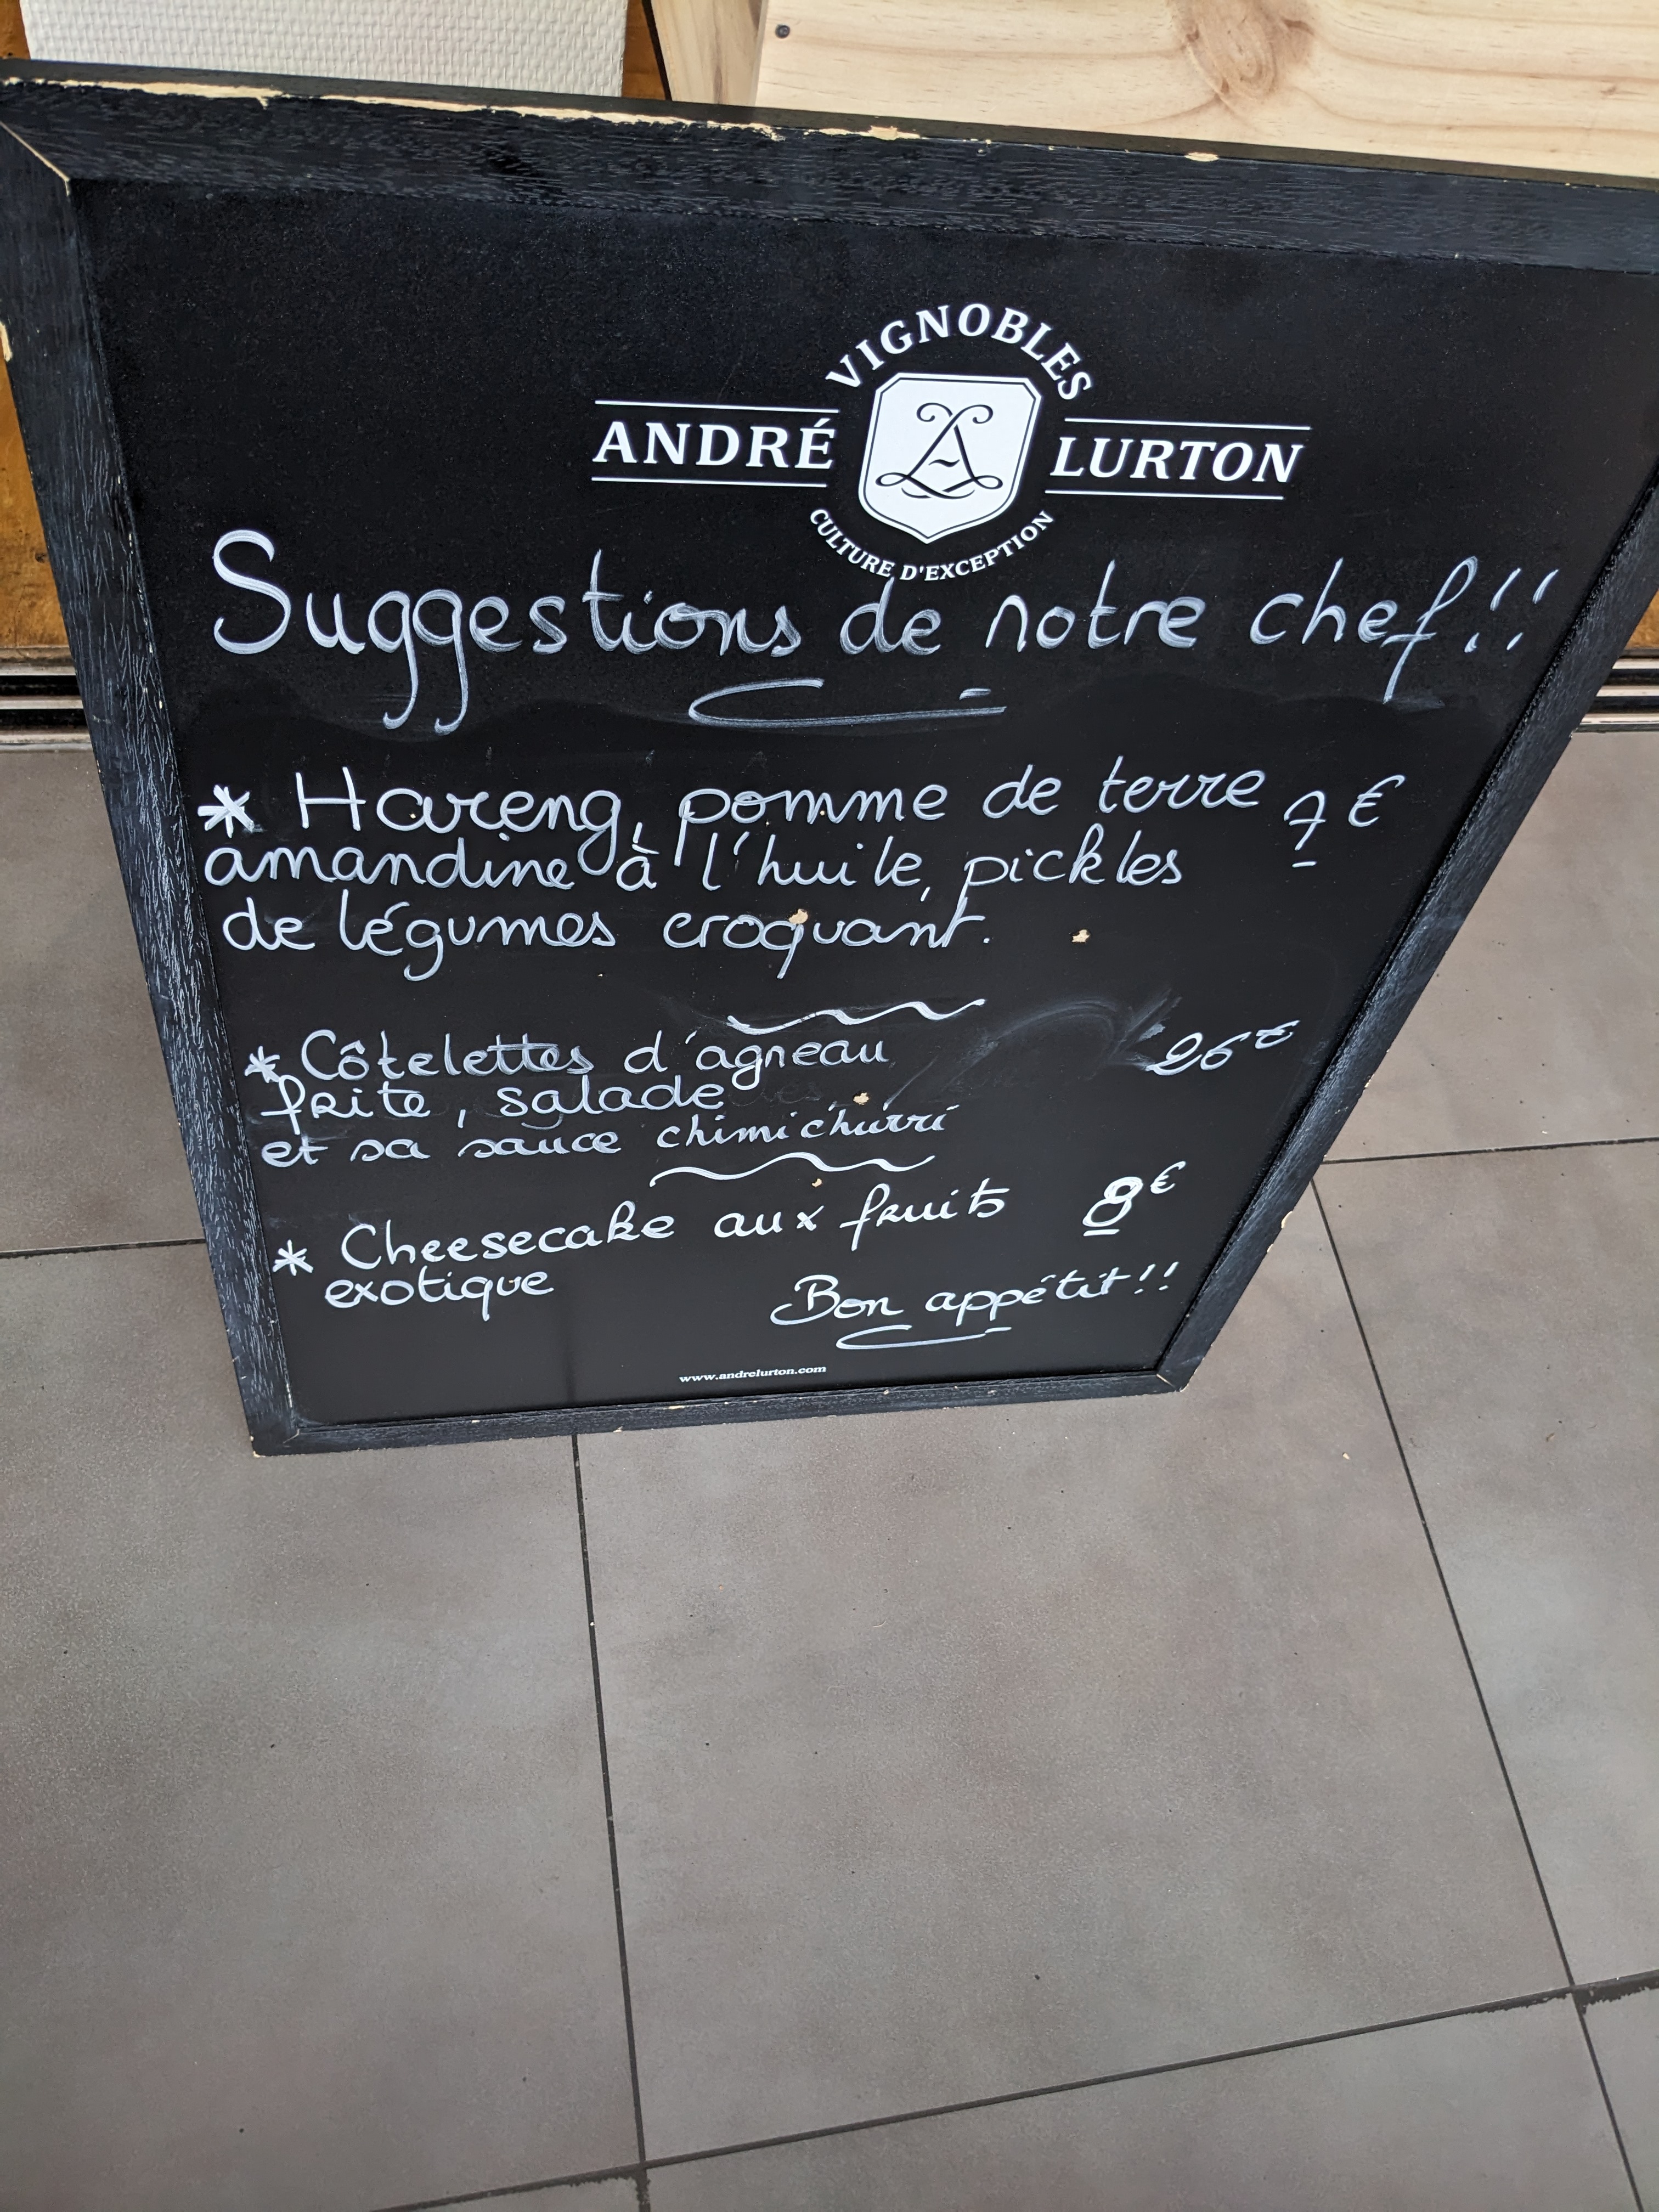 VIGNOBLES
ANDRÉ LURTON
CULTURE D'EXCEPTION
Suggestions de notre chef!!
* Hareng, pomme de terre 7 €
amandine à l'huile, pickles
de légumes croquant.
* Côtelettes d'agneau 26€
frite, salade
et sa sauce chimichurri
* Cheesecake aux fruits 8€
exotique
Bon appétit!!
www.andrelurton.com